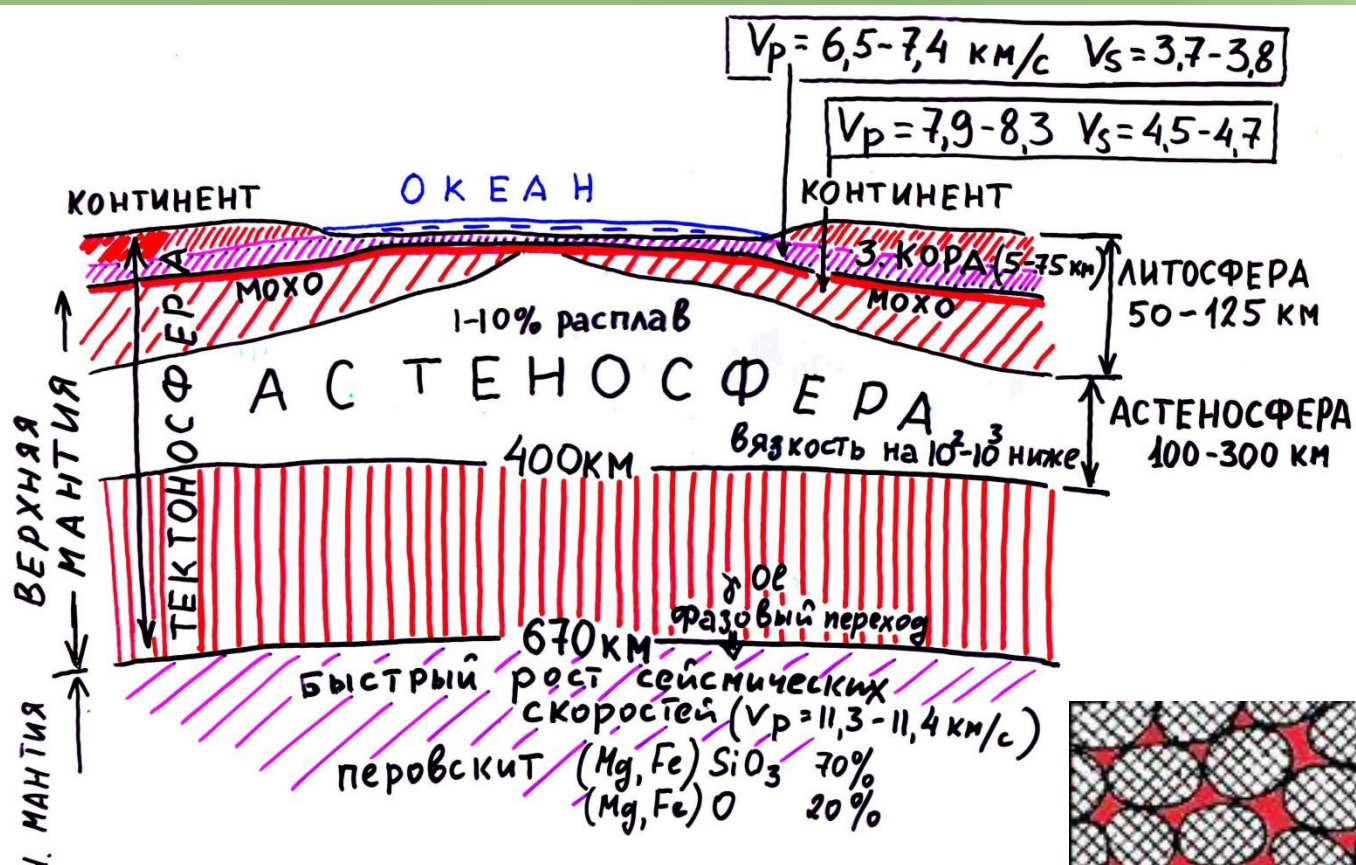 Vp = 6,5-7,4 км/с Vs = 3,7-3,8
Vp = 7,9-8,3 Vs = 4,5-4,7
КОНТИНЕНТ
ОКЕАН
КОНТИНЕНТ
З. КОРА (5-75 км)
ЛИТОСФЕРА
50-125 КМ
МОХО
МОХО
1-10% расплав
АСТЕНОСФЕРА
вязкость на 10²-10³ ниже
АСТЕНОСФЕРА
100-300 КМ
400КМ
ВЕРХНЯЯ
МАНТИЯ
ТЕКТОНОСФЕРА
γ Ol
фазовый переход
670КМ
Быстрый рост сейсмических
скоростей (Vp = 11,3-11,4 км/с)
перовскит (Mg, Fe) SiO₃ 70%
(Mg, Fe) O 20%
МАНТИЯ